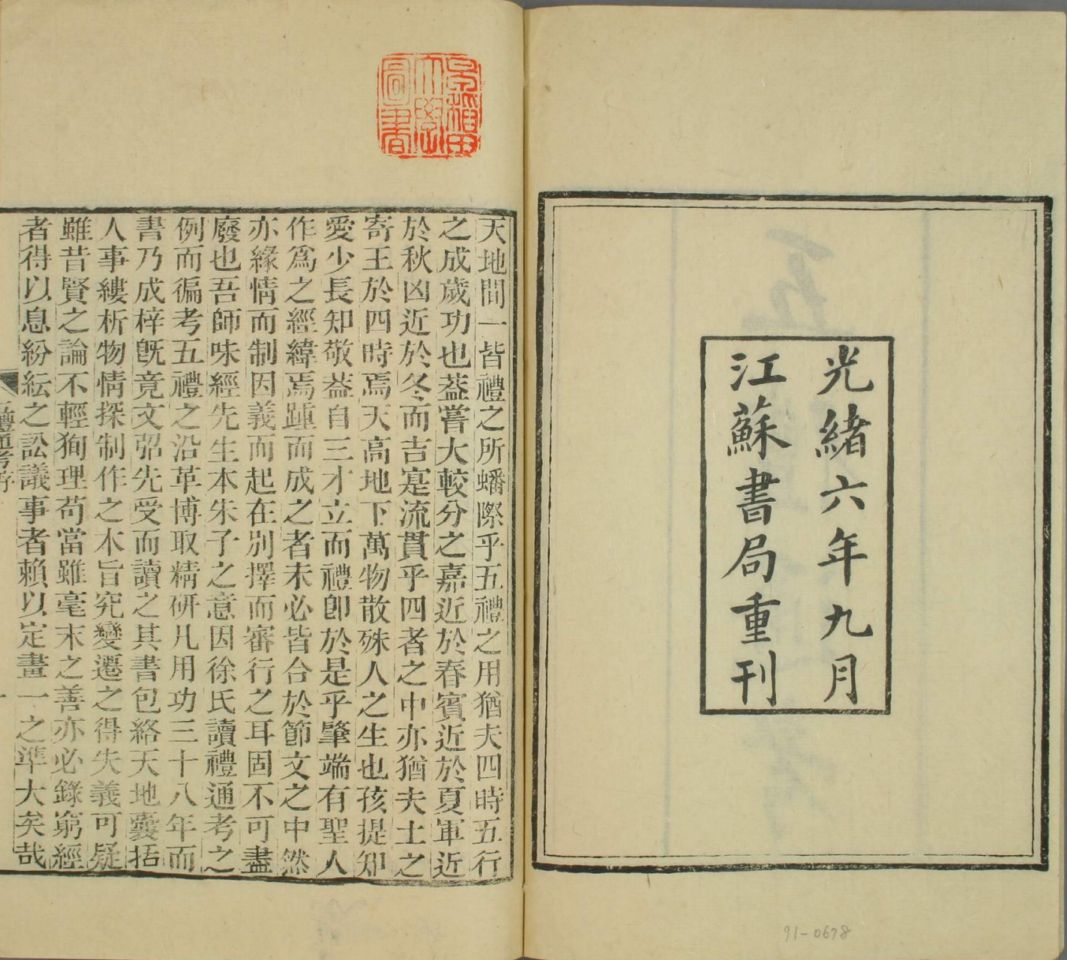 光緒六年九月
江蘇書局重刊
91-0678
早稲田
大學
圖書
天地間一皆禮之所蟠際乎五禮之用猶夫四時五行
之成歲功也葢嘗大較分之嘉近於春賓近於夏軍近
於秋凶近於冬而吉寔流貫乎四者之中亦猶夫土之
寄王於四時焉天高地下萬物散殊人之生也孩提知
愛少長知敬葢自三才立而禮卽於是乎肇端有聖人
作爲之經緯焉踵而成之者未必皆合於節文之中然
亦緣情而制因義而起在別擇而審行之耳固不可盡
廢也吾師味經先生本朱子之意因徐氏讀禮通考之
例而徧考五禮之沿革博取精研凡用功三十八年而
書乃成梓旣竟文弨先受而讀之其書包絡天地囊括
人事縷析物情探制作之本旨究變遷之得失義可疑
雖昔賢之論不輕狥理苟當雖毫末之善亦必錄窮經
者得以息紛紜之訟議事者賴以定畫一之準大矣哉
禮通考序